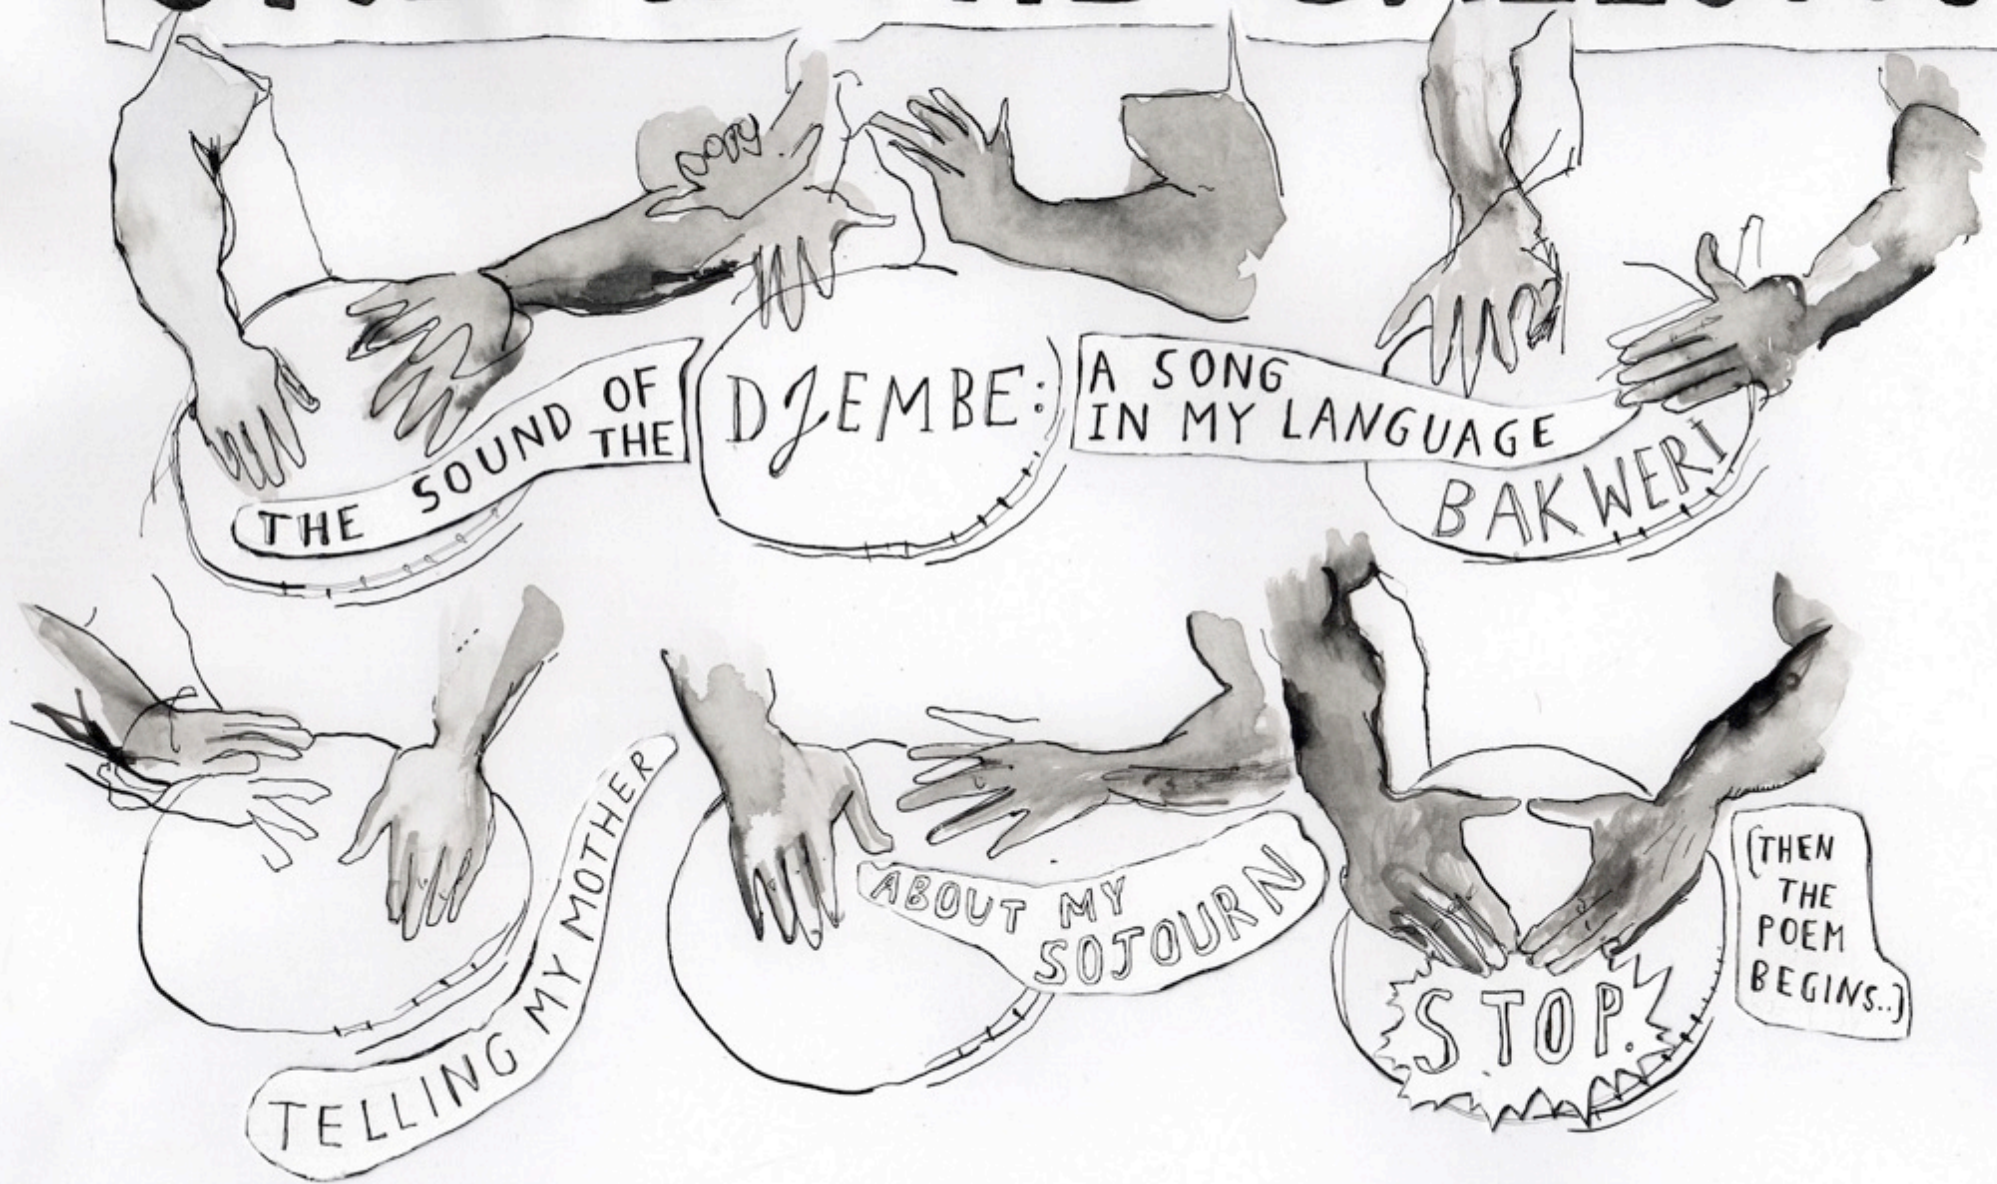 THE SOUND OF
THE
DJEMBE:
A SONG
IN MY LANGUAGE
BAKWERI
TELLING MY MOTHER
ABOUT MY
SOJOURN
STOP.
(THEN
THE
POEM
BEGINS..)